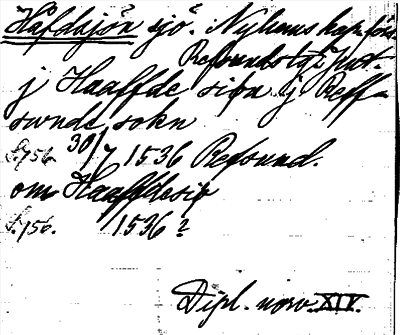 Hafdasjön sjö. Nyhems kapförs.
Refsundstgt Jmt.
j Haaffde siön j Reff-
swnde sokn
S. 756. 30/7 1536 Refsund.
om Haaffdesio
S. 756. / 1536?
Dipl. norv. XIV.